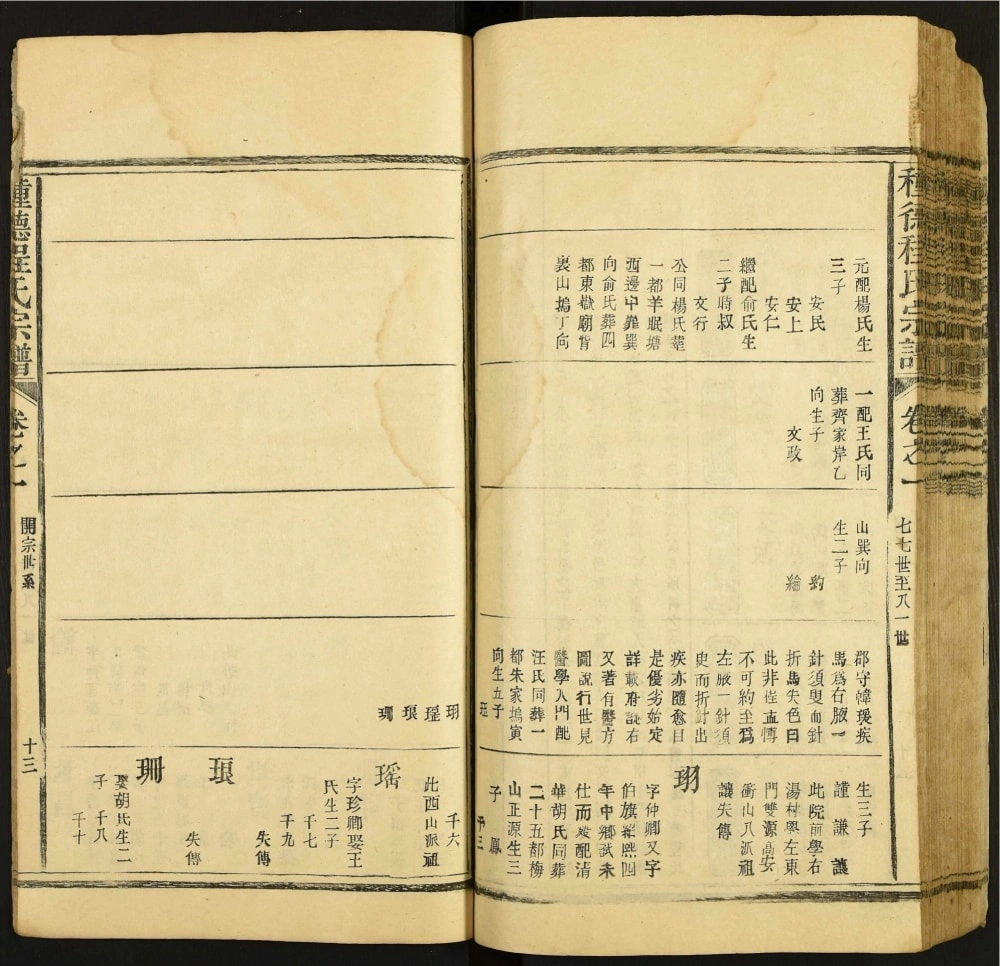 種德程氏宗譜
卷之一
七七世至八一世
元配楊氏生
三子
安民
安上
安仁
繼配俞氏生
二子時叔
文行
公同楊氏葬
一都羊眠塘
西邊中靠巽
向俞氏葬四
都東嶽廟背
裏山塢丁向
一配王氏同
葬齊家岸乙
向生子
文政
山巽向
生二子
綸
郡守韓瑗疾
馬爲右腋一
針須臾而針
折馬失色曰
此非隹血慱
不可約至爲
左腋一針須
臾而折針出
疾亦隨愈自
是優劣始定
詳載府誌右
又著有醫方
圖說行世見
醫學入門配
汪氏同葬一
都朱家塢寅
向生五子
珏
生三子
謹謙讓
此院前學右
湯村學左東
門雙源高安
衝山八派祖
讓失傳
字仲卿又字
伯旗熙四
年中鄉試未
仕而歿配清
華胡氏同葬
二十五都梅
山正源生三
子鳳
千三
琊瑶琅珊
千六
此西山派祖
瑶
字珍卿娶王
氏生二子
千七
千九
失傳
琅
失傳
珊
娶胡氏生二
子千八
千十
種德程氏宗譜
卷之一
開宗世系
十三